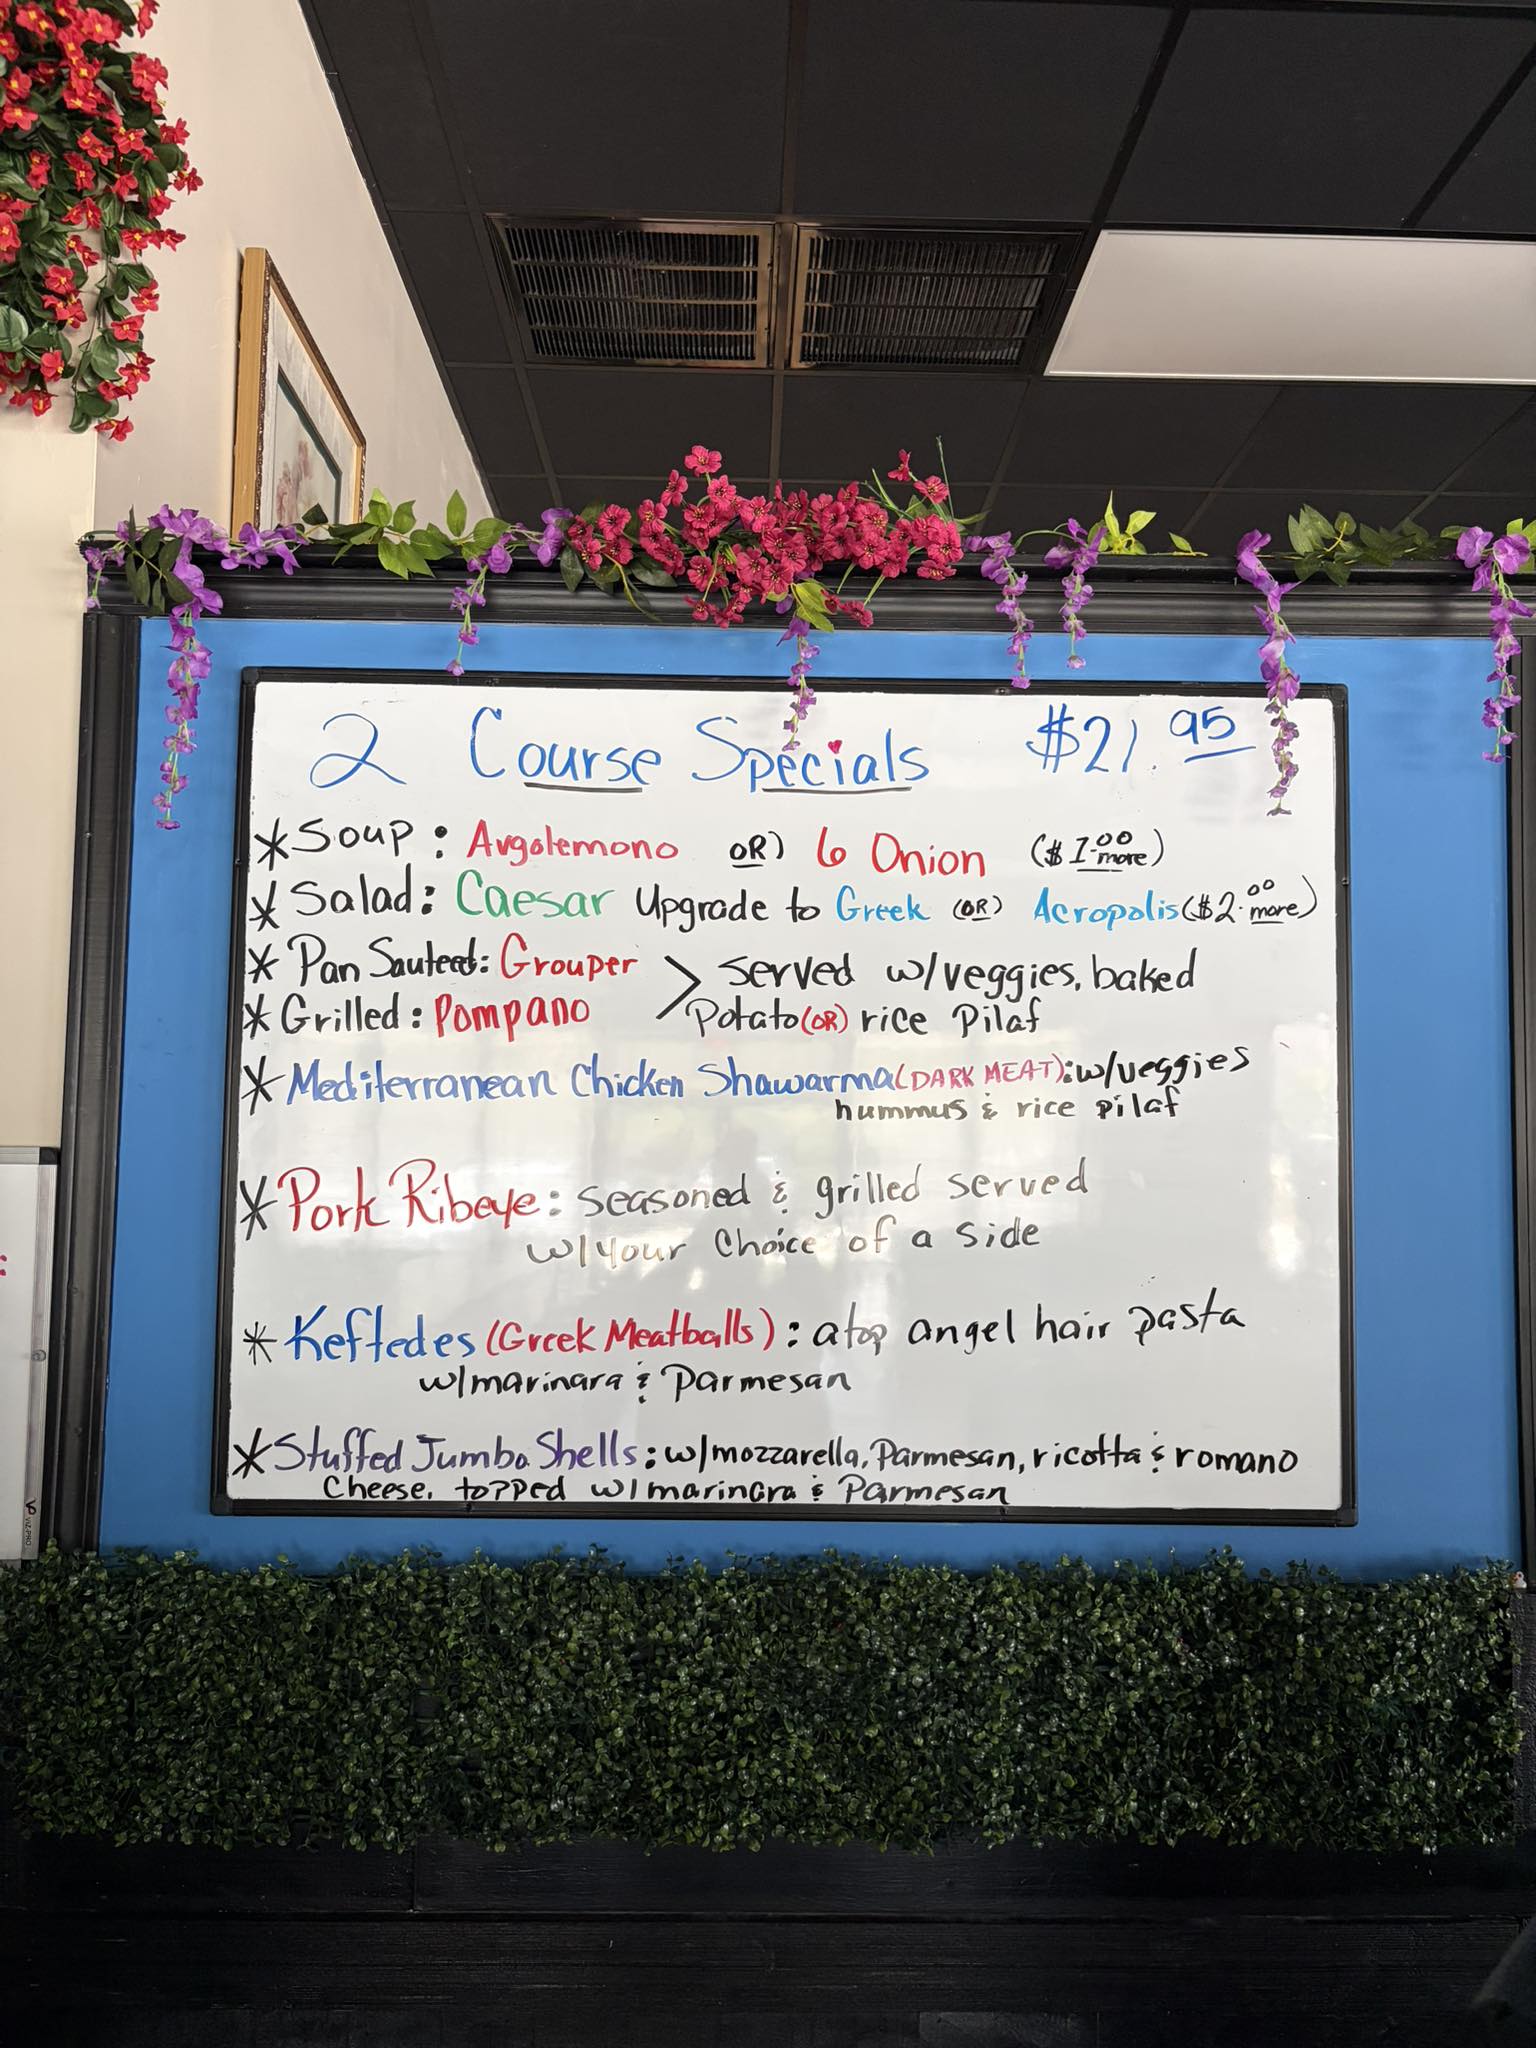 2 Course Specials $21.95
*Soup: Avgolemono OR) 6 Onion ($1.00 more)
*Salad: Caesar Upgrade to Greek (OR) Acropolis ($2.00 more)
*Pan Sauteed: Grouper > Served w/veggies, baked
*Grilled: Pompano Potato (OR) rice Pilaf
*Mediterranean Chicken Shawarma (DARK MEAT): w/veggies
hummus & rice pilaf
*Pork Ribeye: seasoned & grilled served
w/your choice of a side
*Keftedes (Greek Meatballs): atop angel hair pasta
w/marinara & Parmesan
*Stuffed Jumbo Shells: w/mozzarella, Parmesan, ricotta & romano
Cheese, topped w/marinara & Parmesan
VIZ-PRO